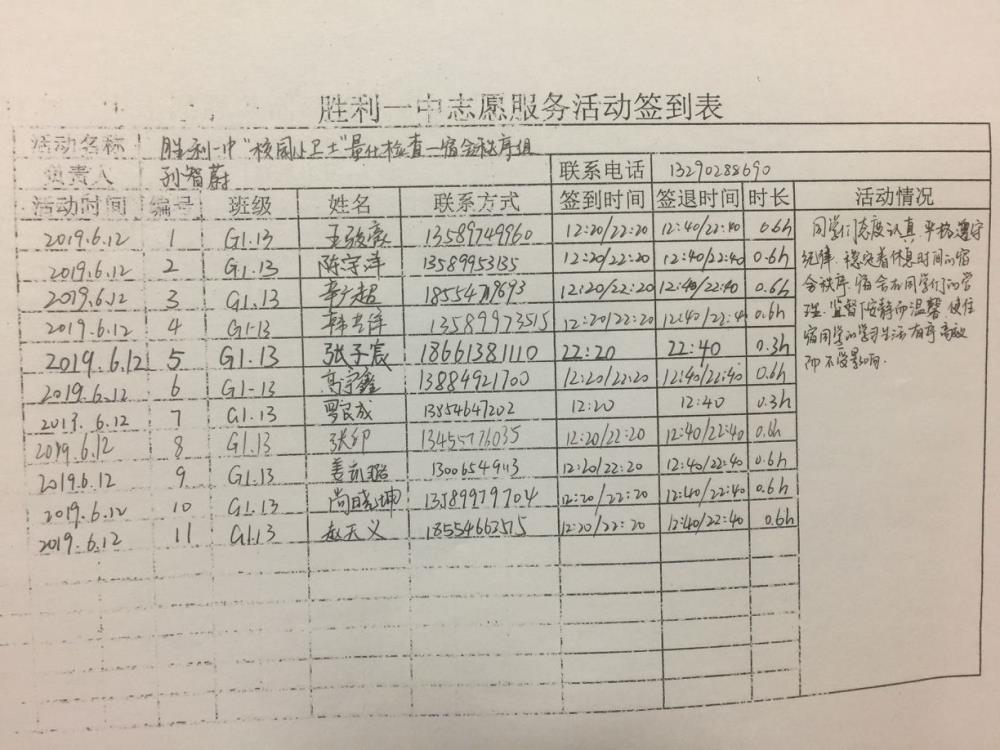 胜利一中志愿服务活动签到表
活动名称 胜利一中"校园小卫士"量化检查—宿舍秩序组
负责人 孙智蔚 联系电话 13290288690
活动时间 编号 班级 姓名 联系方式 签到时间 签退时间 时长 活动情况
2019.6.12 1 G1.13 王骏豪 13589749960 12:20/22:20 12:40/22:40 0.6h
2019.6.12 2 G1.13 陈宇洋 13589953135 12:20/22:20 12:40/22:40 0.6h
2019.6.12 3 G1.13 辛广超 12:20/22:20 12:40/22:40 0.6h
2019.6.12 4 G1-13 韩 洋 13589973515 12:20/22:20 12:40/22:4 0.6h
2019.6.12 5 G1.13 张子宸 18661381110 22:20 22:40 0.3h
2019.6.12 6 G1-13 高宇鑫 13884921700 12:20/22:20 12:40/22:40 0.6h
2013.6.12 7 G1.13 成 13854647202 12:20 12:40 0.3h
2019.6.12 8 G1.13 张印 13455776035 12:20/22:20 12:40/22:40 0.6h
2019.6.12 9 G1.13 姜 12:20/22:20 12:40/22:40 0.6h
2019.6.12 10 G1.13 尚晓坤 13589979704 12:20/22:20 12:40/22:40 0.6h
2019.6.12 11 G1.13 赵天义 18554662575 12:20/22:20 12:40/22:40 0.6h
同学们态度认真,严格遵守
纪律,稳定着休息时间的宿
舍秩序.宿舍在同学们的管
理.监督下安静而温馨,使住
宿同学的学习生活有序高效
而不受影响.